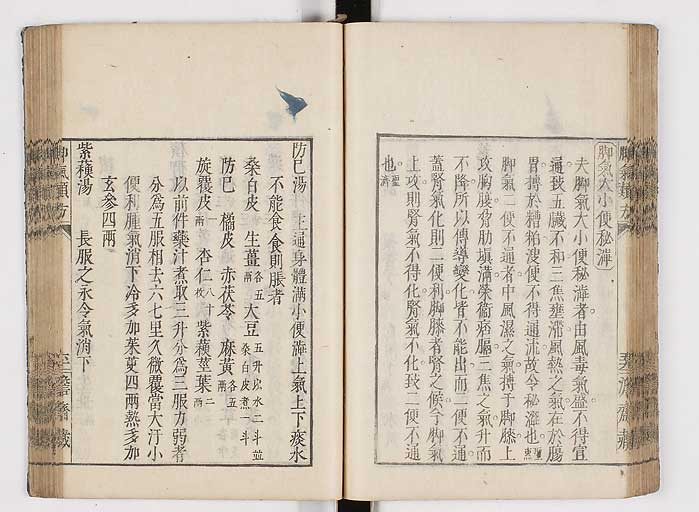 脚氣大小便秘澁
夫脚氣大小便秘澁者由風毒氣盛不得宣
通致五臟不和三焦壅滯風熱之氣在於腸
胃搏於糟粕溲便不得通流故令秘澁也
脚氣二便不通者中風濕之氣搏于脚膝上
攻胸腹脅肋塡滿榮衞痞膈三焦之氣升而
不降所以傳導變化皆不能出而二便不通
蓋腎氣化則二便利脚膝者腎之候今脚氣
上攻則腎氣不得化腎氣不化致二便不通
也
防已湯 主通身體滿小便澁上氣上下痰水
不能食食則脹者
桑白皮 生薑各五兩 大豆五升以水二斗並桑白皮煮一斗
防巳 橘皮 赤茯苓 麻黃各五兩
旋覆皮一兩 杏仁八十枚 紫蘇莖葉二兩
以前件藥汁煮取三升分爲三服力弱者
分爲五服相去六七里久微覆當大汗小
便利腫氣消下冷多加茱萸四兩熱多加
玄參四兩
紫蘇湯 長服之永令氣消下
脚氣類方